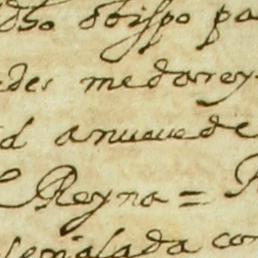 dho obispo pa
des medarey
d anueue de
Reyna =
señalada con